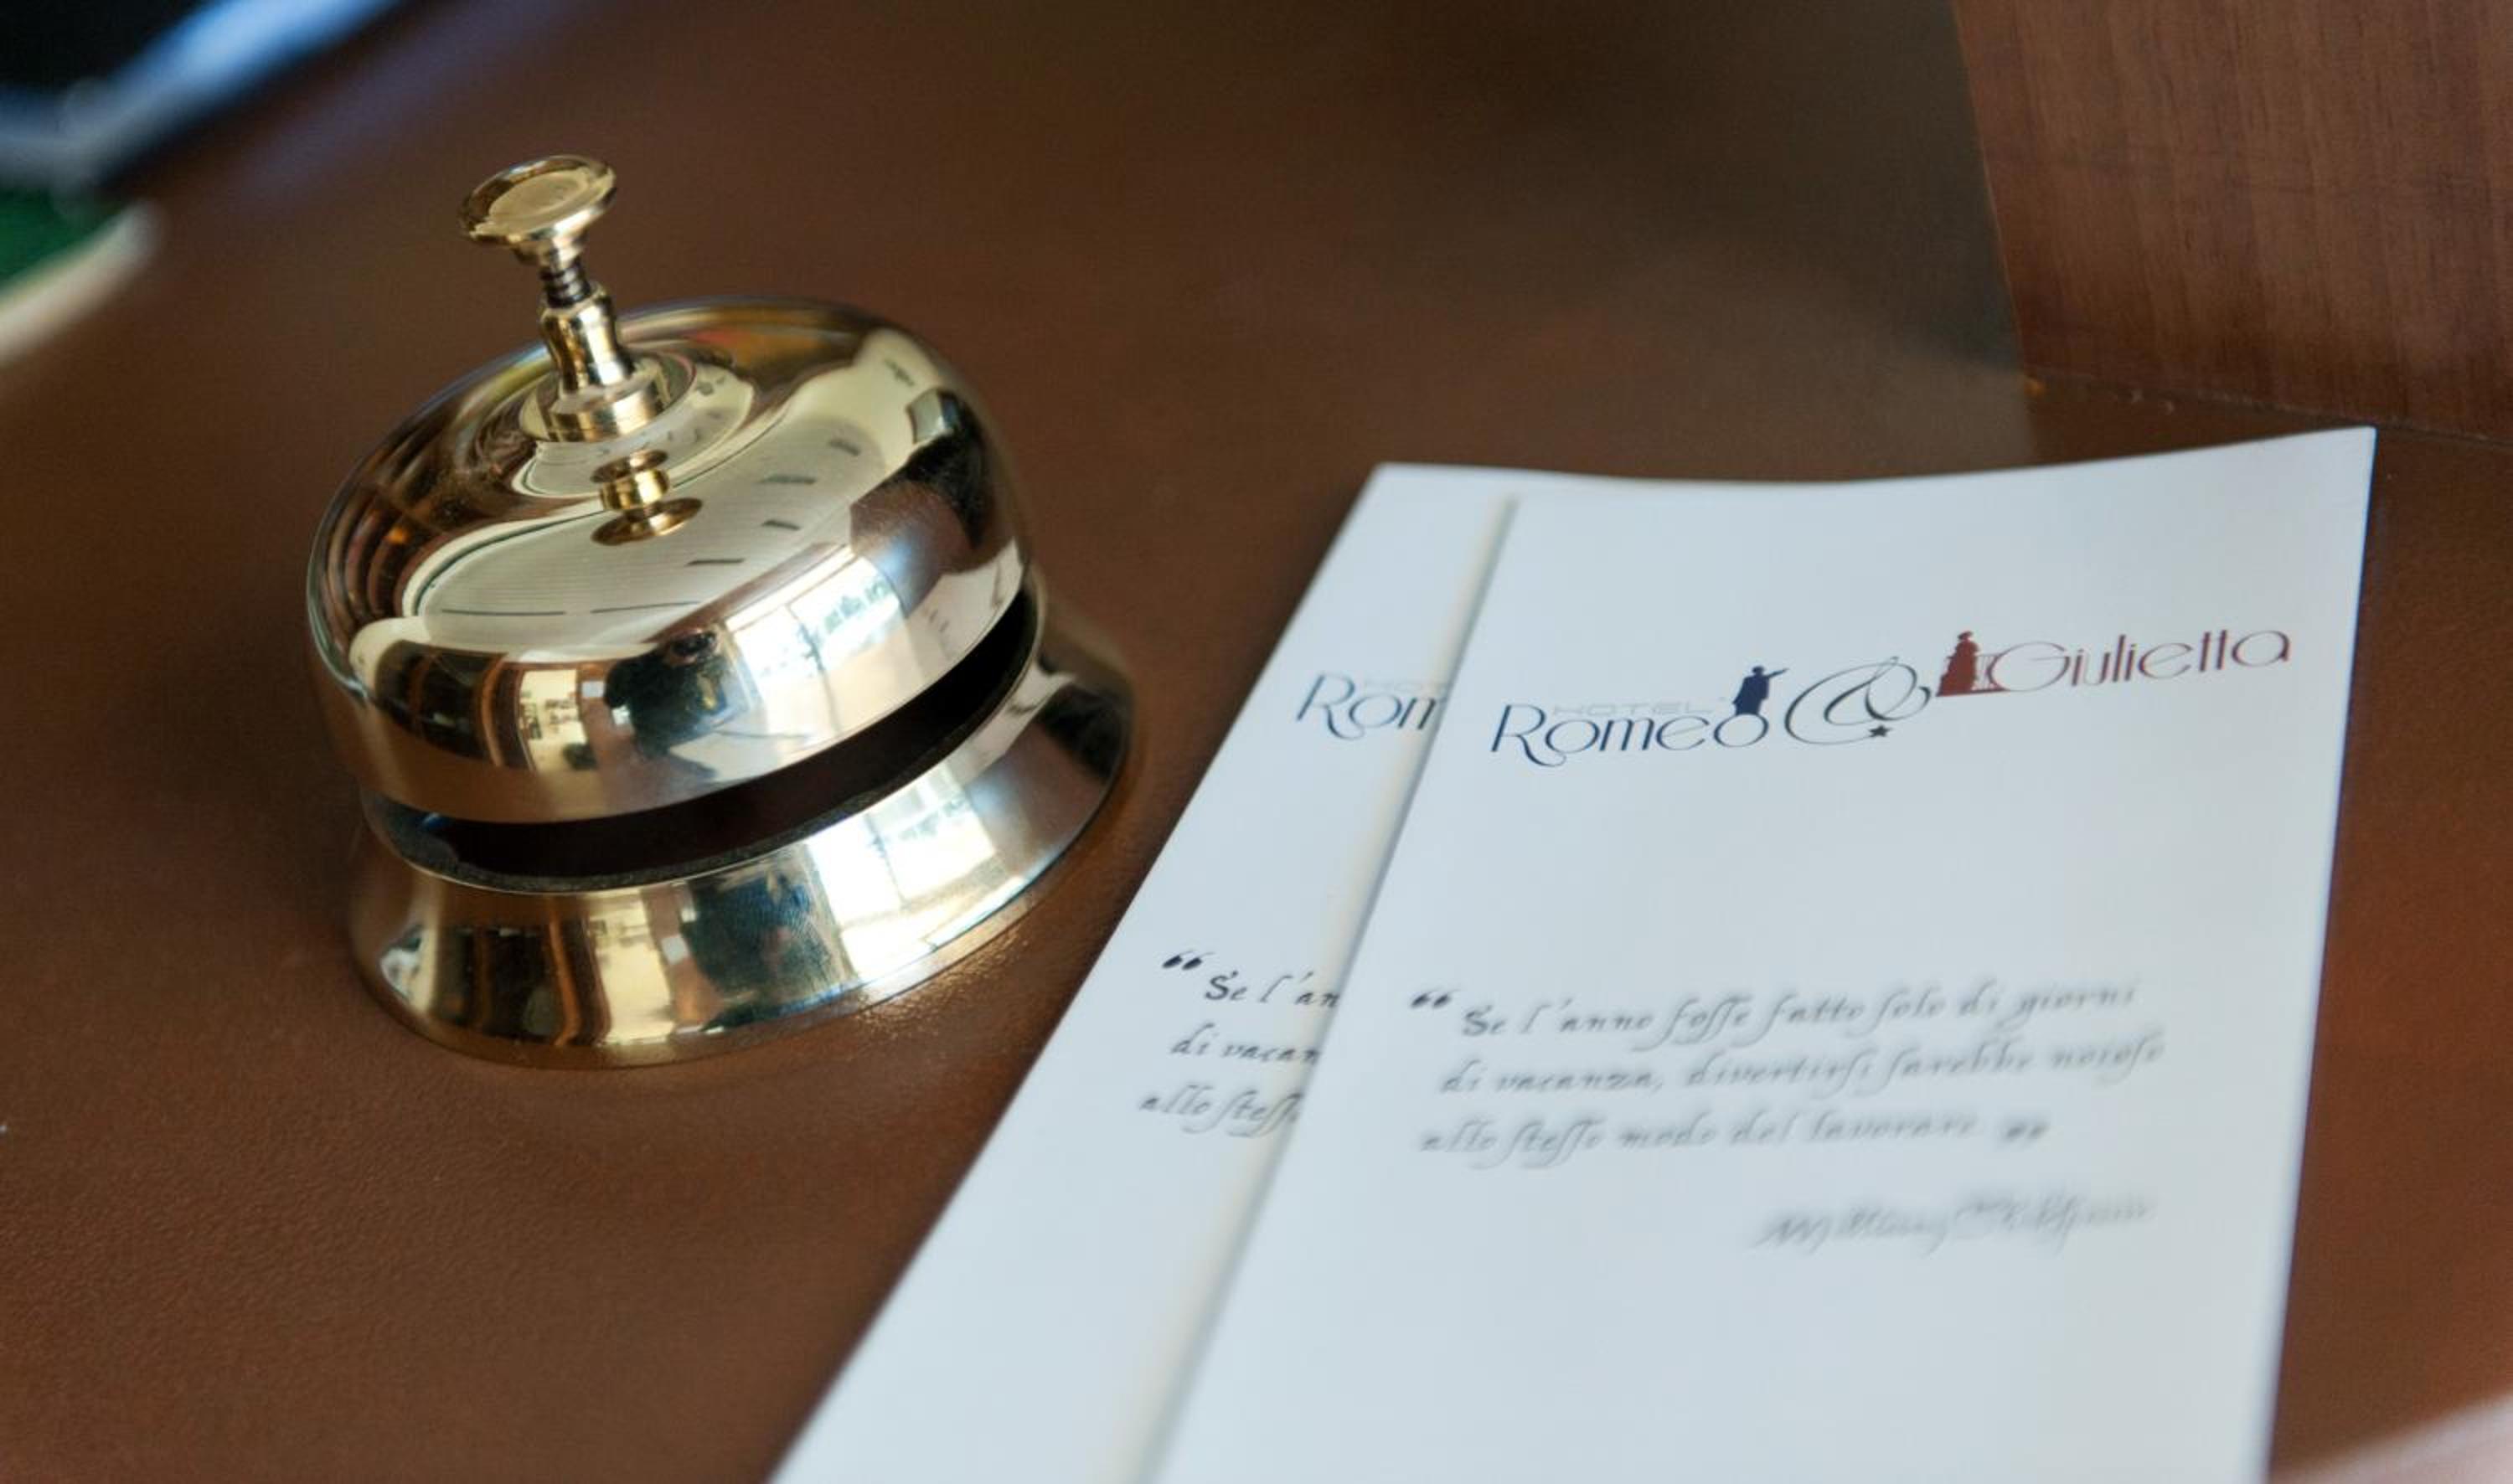 Rom
HOTEL
Romeo & Giulietta
“ Se l'an
di vacan
allo ſteſſ
“ Se l'anno foſſe fatto ſolo di giorni
di vacanza, divertirſi ſarebbe noioſo
allo ſteſſo modo del lavorare. ”